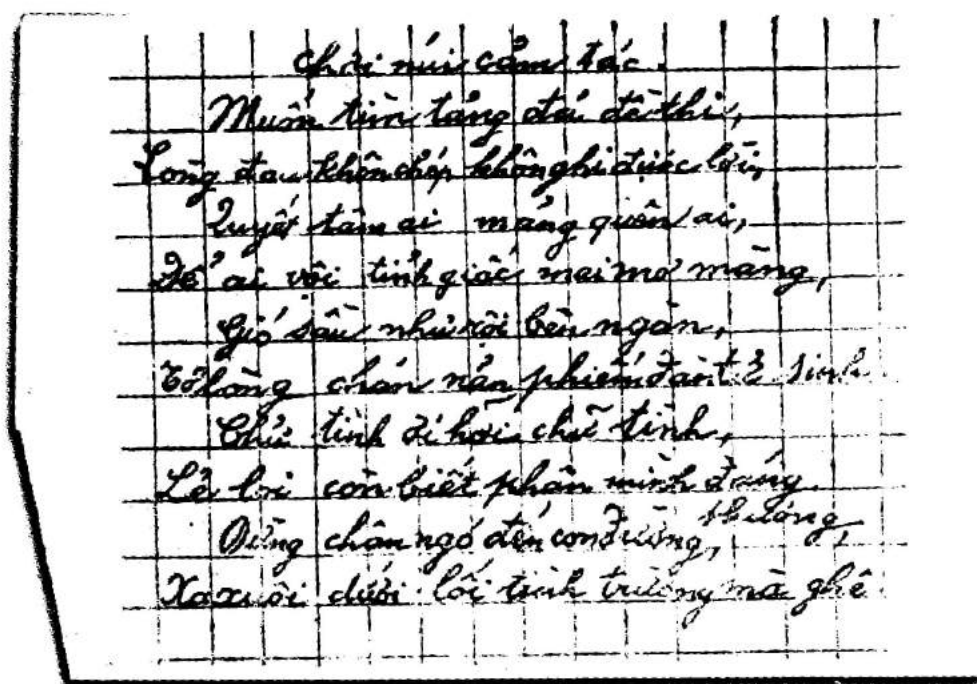 Chơi núi cảm tác.
Muốn tìm tảng đá đề thi,
Lòng đau khôn chép không ghi được lời,
Quyết tâm ai mảng quên ai,
Để ai vội tỉnh giấc mai mơ màng,
Gió sầu như rội bên ngàn,
Tơ lòng chán nản phiếm đàn tế sinh
Chữ tình ơi hỡi chữ tình,
Lẻ loi còn biết phận mình đáng thương,
Dừng chân ngó đến con đường,
Xa xuôi dưới lối tình trường mà ghê.